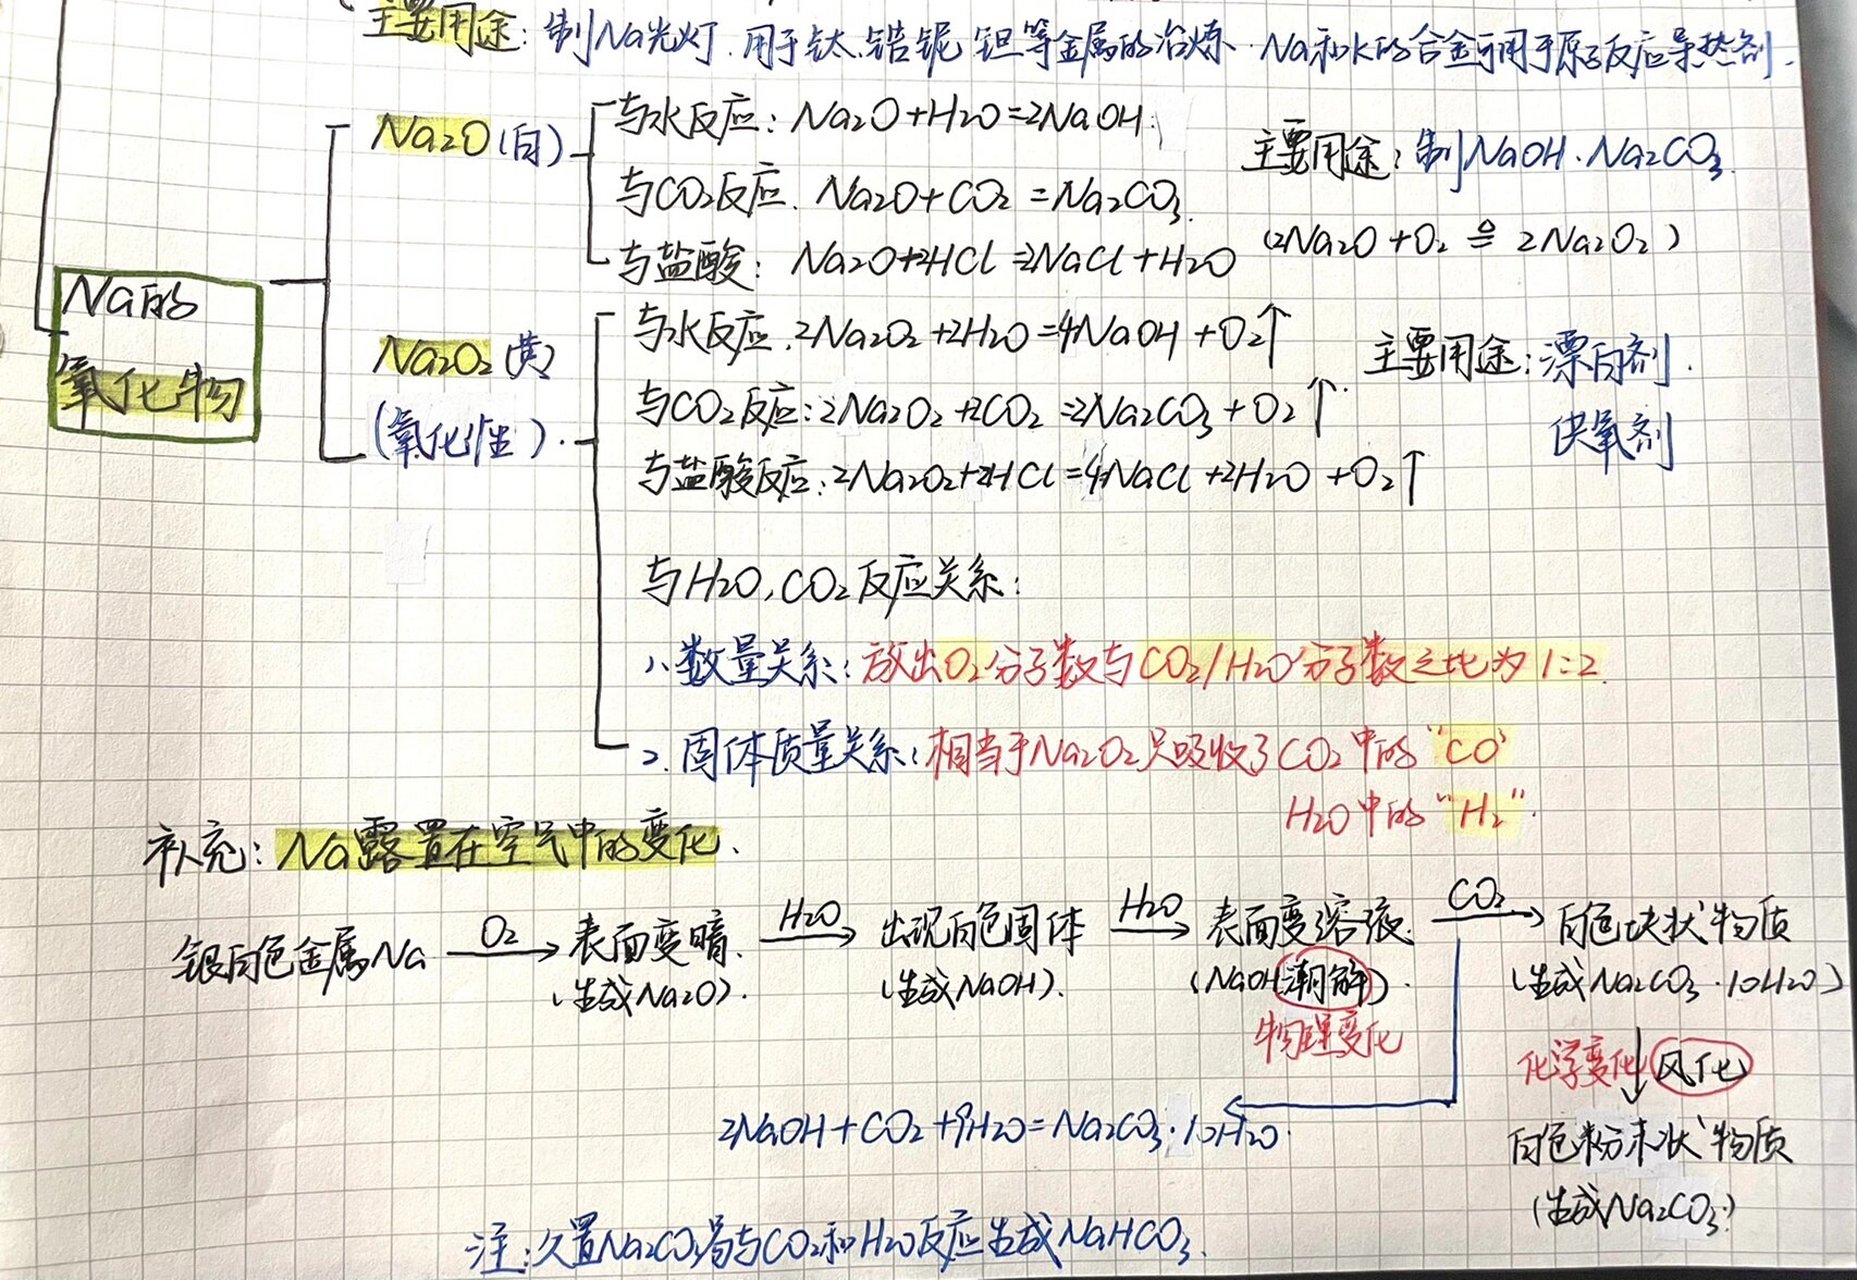 主要用途：制Na光灯.用于钛.锆铌钽等金属的冶炼.Na和K的合金可用于原子反应导热剂.
Na的
氧化物
Na2O(白)
与水反应：Na2O+H2O=2NaOH.
与CO2反应. Na2O+CO2=Na2CO3.
与盐酸：Na2O+2HCl=2NaCl+H2O
主要用途：制NaOH.Na2CO3.
(2Na2O+O2≜2Na2O2)
Na2O2(黄)
(氧化性).
与水反应.2Na2O2+2H2O=4NaOH+O2↑
与CO2反应：2Na2O2+2CO2=2Na2CO3+O2↑.
与盐酸反应：2Na2O2+2HCl=4NaCl+2H2O+O2↑
主要用途：漂白剂.
供氧剂
与H2O,CO2反应关系：
1.数量关系：放出O2分子数与CO2/H2O分子数之比为1:2.
2.固体质量关系：相当于Na2O2只吸收了CO2中的"CO"
H2O中的"H2".
补充：Na露置在空气中的变化.
银白色金属Na O2→ 表面变暗. H2O→ 出现白色固体 H2O→ 表面变溶液. CO2→ 白色块状物质
(生成Na2O). (生成NaOH). (NaOH潮解). (生成Na2CO3·10H2O)
物理变化
化学变化↓风化
2NaOH+CO2+9H2O=Na2CO3·10H2O.
白色粉末状物质
(生成Na2CO3)
注：久置Na2CO3易与CO2和H2O反应生成NaHCO3.